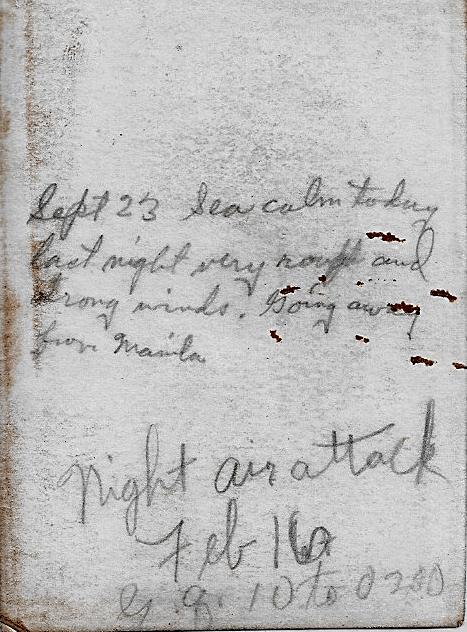 Sept 23 Sea calm today
last night very rough and
strong winds. Going away
from Manila
Night air attack
Feb 16
G. Q. 10 to 0230